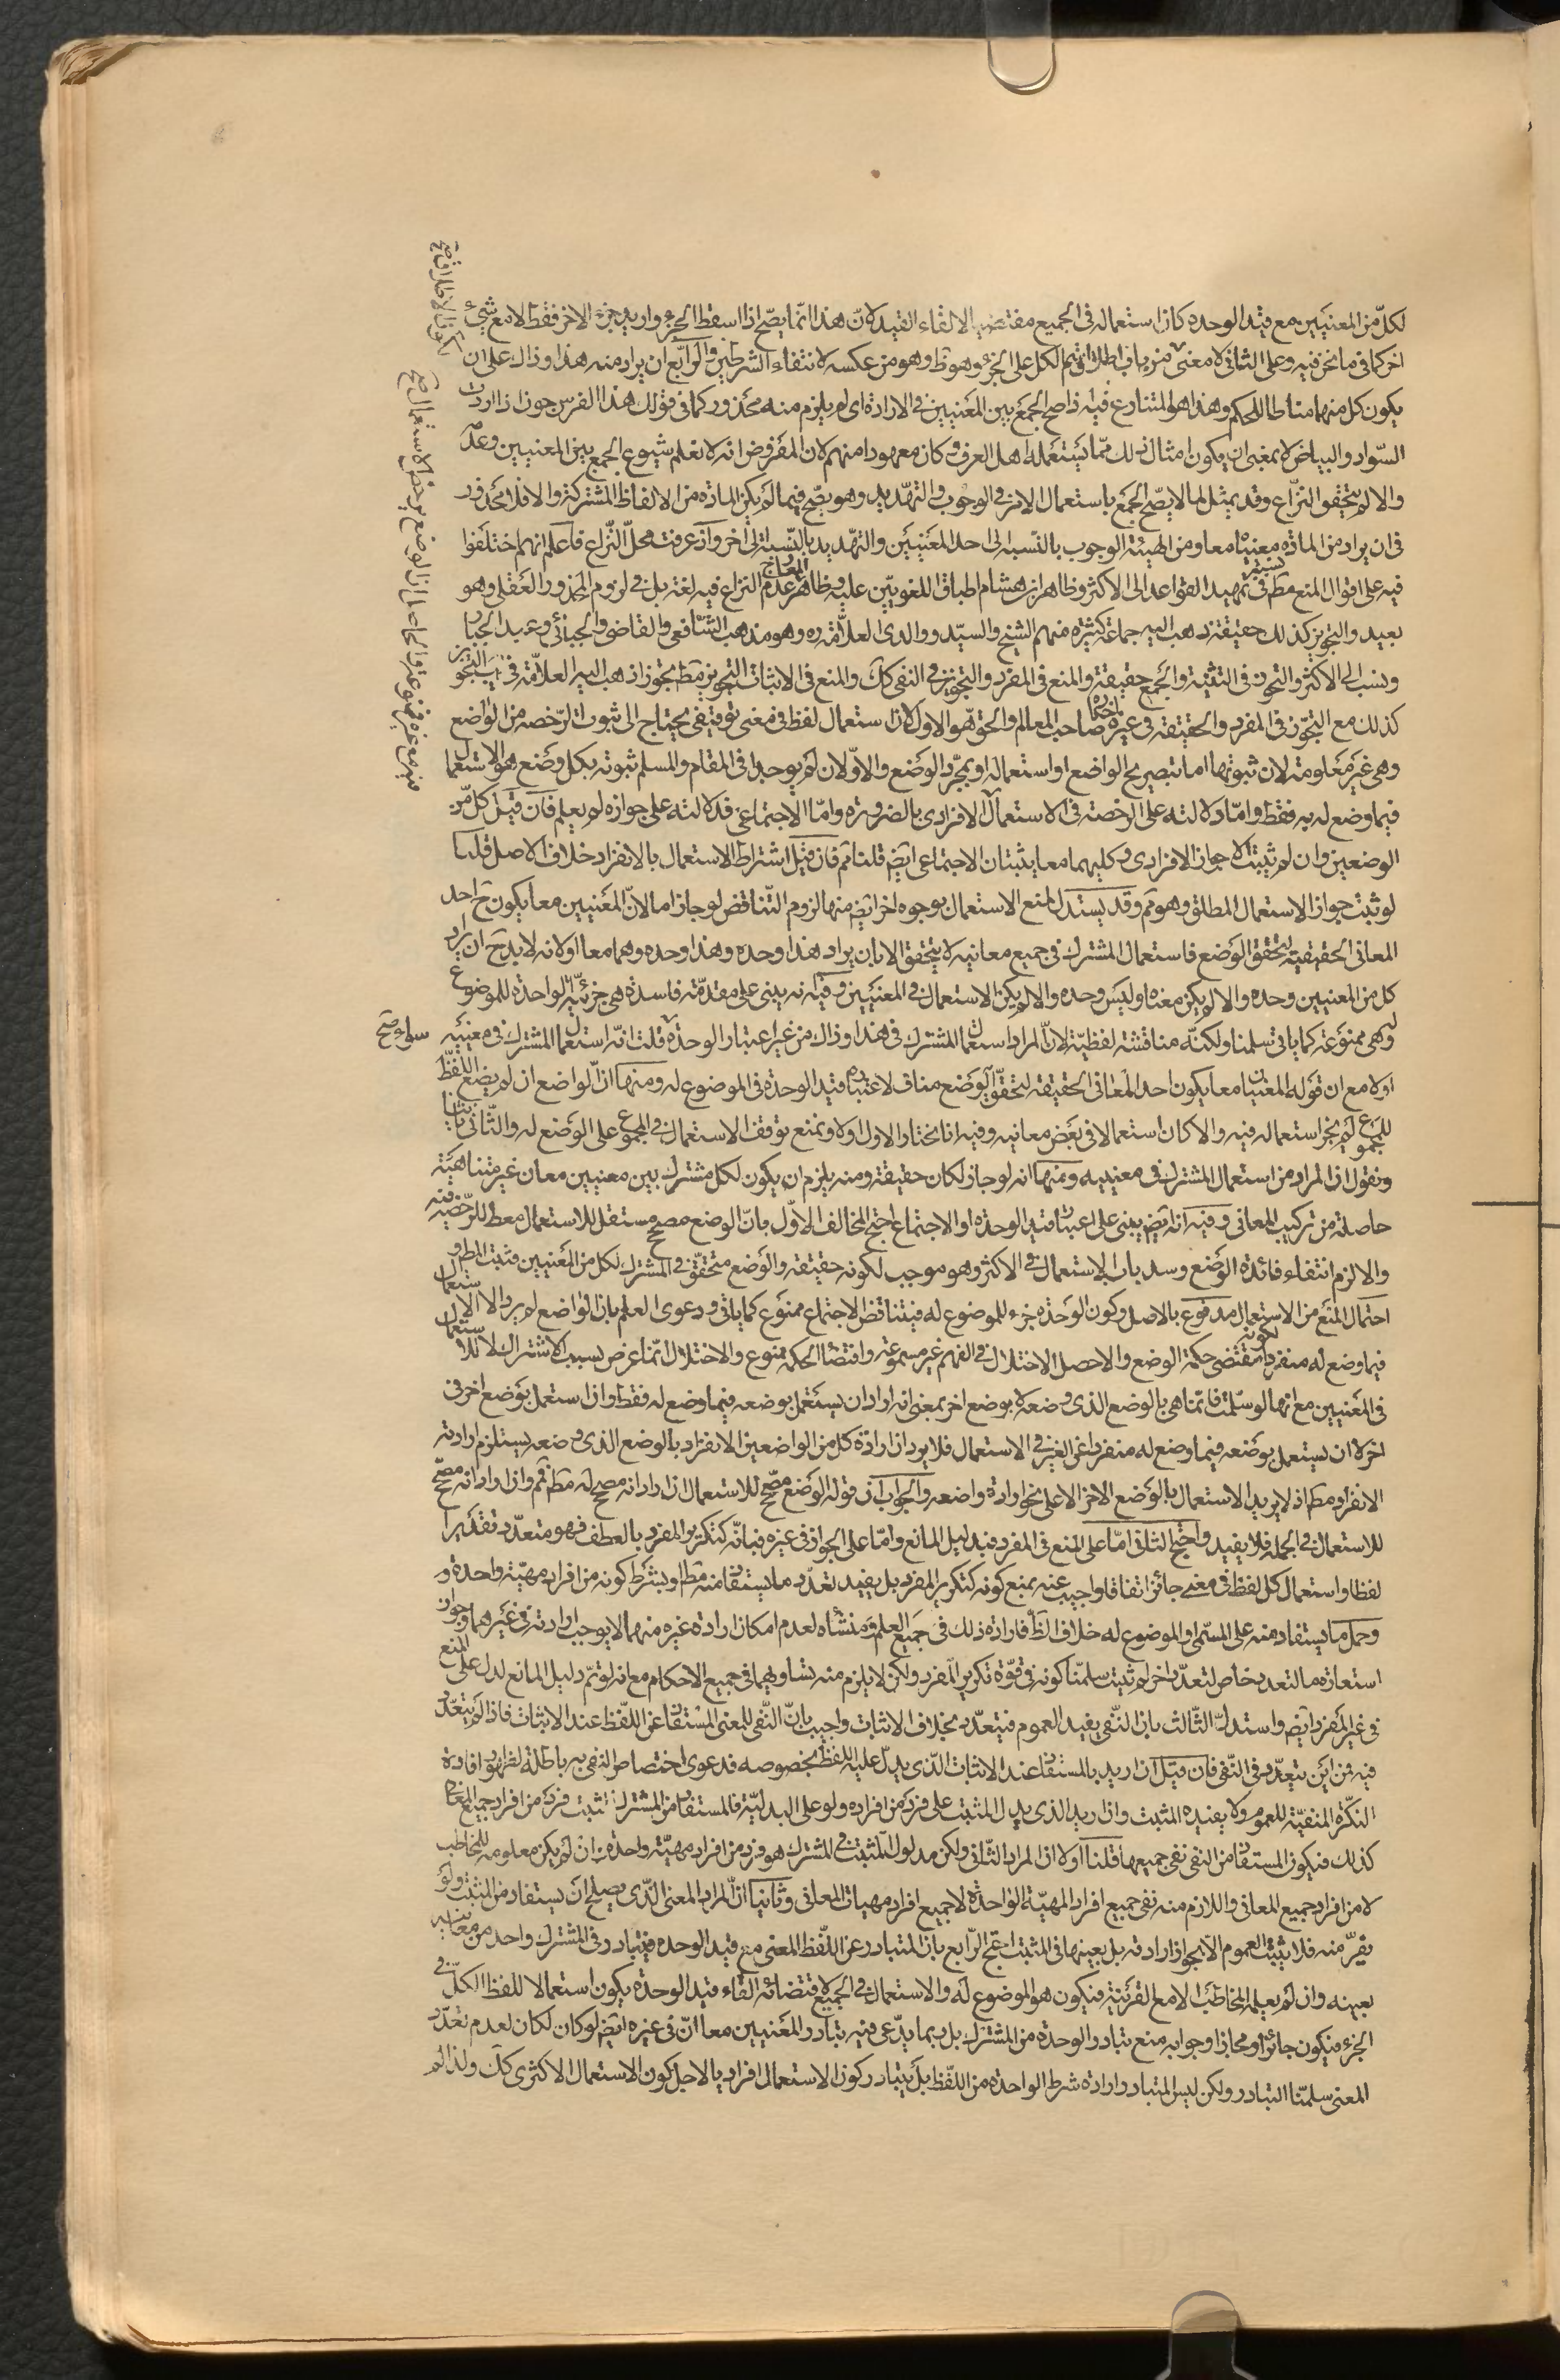 لكلّ من المعنيين مع قيد الوحدة كان استعماله في الجميع مقتضيا لالقاء القيد لانّ هذا انّما يصّح اذا اسقط الجزء واريد جزء الاخر فقط لا مع شيء
اخر كما في ما نحن فيه وعلى الثاني لا معنى من باب اطلاق اسم الكل على الجزء وهو ظ وهو من عكسه لانتفاء الشرطين والرابع ان يراد منه هذا وذاك على ان
يكون كل منهما مناطا للحكم وهذا هو المتنازع فيه اذا صح الجمع بين المعنيين في الارادة اى لم يلزم منه محذور كما في قولك هذا الفرس جون اذا اردت
السّواد والبياض لا بمعنى ان يكون امثال ذلك ممّا يستعمله اهل العرف وكان معهودا منهم لان المفروض انه لا نعلم شيوع الجمع بين المعنيين وعدمه
والا لم يتحقق النزّاع وقد يمثل لما لا يصّح الجمع باستعمال الامر في الوجوب والتهديد وهو يصّح فيما لم يكن المادّة من الالفاظ المشتركة والا فلا محذور
في ان يراد من المادّة معنيان معا ومن الهيئة الوجوب بالنّسبة الى احد المعنيين والتهديد بالنّسبة الى اخر واذ عرفت محلّ النّزاع فاعلم انهم اختلفوا
فيه على اقوال المنع مط نسبه في تمهيد القواعد الى الاكثر وظاهر ابن هشام اطباق اللغويّين عليه وظاهر المعارج عدم النزاع فيه لغة بل في لزوم المحذور العقلي وهو
بعيد والتجويز كذلك حقيقة ذهب اليه جماعة كثيرة منهم الشيخ والسيّد ووالدى العلاّمة ره وهو مذهب الشّافعي والقاضي والجبائي وعبد الجبار
ونسب الى الاكثر والتجوز في التثنية والجمع حقيقة والمنع في المفرد والتجويز في النفى كك والمنع في الاثبات والتجويز مط تجوزا ذهب اليه العلاّمة في يب والتجويز
كذلك مع التجوّز في المفرد والحقيقة في غيره اختاره صاحب المعالم والحق هو الاول لان استعمال لفظ في معنى توقيفى يحتاج الى ثبوت الرّخصة من الواضع
وهي غير معلومة لان ثبوتها اما بتصريح الواضع او استعماله او بمجرّد الوضع والاوّلان لم يوجدا في المقام والمسلم ثبوته بكل وضع هو الاستعمال
فيما وضع له به فقط وامّا دلالته على الرخصة في الاستعمال الافرادى بالضرورة وامّا الاجتماعى فدلالته على جوازه لم يعلم فان قيل كل من
الوضعين وان لم يثبت الا جواز الافرادى وكليهما معا يثبتان الاجتماعى ايض قلنا تم فان قيل اشتراط الاستعمال بالانفراد خلاف الاصل قلنا
لو ثبت جواز الاستعمال المطلق وهو تم وقد يستدل لمنع الاستعمال بوجوه اخر ايض منها لزوم التناقض لو جاز اما لانّ المعنيين معا يكون ح احد
المعانى الحقيقية لتحقق الوضع فاستعمال المشترك في جميع معانيه لا يتحقق الا بان يراد هذا وحده وهذا وحده وهما معا او لانه لا بد ح ان يراد
كل من المعنيين وحده والا لم يكن معناه او ليس وحده والا لم يكن الاستعمال في المعنيين وفيه انه يبنى على مقدّمة فاسدة هى جزئيّة الواحدة للموضوع
له وهى ممنوعة كما ياتي تسلمنا ولكنّه مناقشة لفظيّة لانّ المراد استعمال المشترك في هذا وذاك من غير اعتبار الوحدة قلت انّه استعمال المشترك في معنييه سواء صح
اولا مع ان قوله المعنيان معا يكون احد المعانى الحقيقة لتحقق الوضع مناف لاعتبار قيد الوحدة في الموضوع له ومنها انّ الواضع ان لم يضع اللّفظ
للمجموع لم يجز استعماله فيه والا كان استعمالا في بعض معانيه وفيه انا نختار الاول اولا ونمنع توقف الاستعمال في المجموع على الوضع له والثّاني ثانيا
ونقول ان المراد من استعمال المشترك في معنييه ومنها انه لو جاز لكان حقيقة ومنه يلزم ان يكون لكل مشترك بين معنيين معان غير متناهية
حاصلة من تركيب المعانى وفيه انه ايض يبنى على اعتبار قيد الوحدة او الاجتماع احتج المخالف الاوّل بانّ الوضع مصحح مستقل للاستعمال معط للرّخصة فيه
والا لزم انتفاء فائدة الوضع وسد باب الاستعمال في الاكثر وهو موجب لكونه حقيقة والوضع متحقّق في المشترك لكل من المعنيين فثبت المط و
احتمال المنع من الاستعمال مدفوع بالاصل وكون الوحدة جزء للموضوع له فيتناقض الاجتماع ممنوع كما ياتي ودعوى العلم بان الواضع لم يرد الا الاستعمال
فيما وضع له منفردا لكونه مقتضى حكمة الوضع والا حصل الاختلال في الفهم غير مسموعة واقتضا الحكمة ممنوع والاختلال انّما عرض بسبب الاشتراك لا للاستعمال
في المعنيين مع انها لو سلّمت فانّما هى بالوضع الذى وضعه لا بوضع اخر بمعنى انه اراد ان يستعمل بوضعه فيما وضع له فقط وان استعمل بوضع اخر في
اخر لا ان يستعمل بوضعه فيما وضع له منفردا عن الغير في الاستعمال فلا يرد ان ارادة كل من الواضعين الانفراد بالوضع الذى وضعه يستلزم ارادته
الانفراد مط اذ لا يريد الاستعمال بالوضع الاخر الا على نحو ارادة واضعه والجواب ان قوله الوضع مصحّح للاستعمال ان اراد انه مصحح له مط فمم وان اراد انه مصحّح
للاستعمال في الجملة فلا يفيد واحتج الثانى امّا على المنع في المفرد فبدليل المانع وامّا على الجواز في غيره فبانّه كتكرير المفرد بالعطف فهو متعدّد تقديرا
لفظا واستعمال كل لفظ في معنى جائز اتفاقا واجيب عنه بمنع كونه كتكرير المفرد بل يفيد تعدّد ما يستفاد منه مط او يشترط كونه من افراد مهيّة واحدة و
وحمل ما يستفاد منه على المسّمى او الموضوع له خلاف الظّ فارادة ذلك في جميع العلم ومنشاه لعدم امكان ارادة غيره منهما لا يوجب ارادته في غيرهما وجواز
استعارة ما لتعدد خاص لتعدّد اخر لم يثبت سلمنا كونه في قوّة تكرير المفرد ولكن لا يلزم منه تساويهما في جميع الاحكام مع انه لو تم دليل المانع لدل على المنع
في غير المفرد ايض واستدل الثّالث بان النّفى يفيد العموم فيتعدّد بخلاف الاثبات واجيب بانّ النّفى للمعنى المستفاد عن اللّفظ عند الاثبات فاذا لم يتعدّد
فيه فمن اين يتعدّد في النّفى فان قيل ان اريد بالمستفاد عند الاثبات الّذى يدلّ عليه اللفظ بخصوصه فدعوى اختصاص النفى به باطلة لظهور افادة
النّكرة المنفيّة للعموم ولا يفيده المثبت وان اريد الذى يدل المثبت على فرد من افراده ولو على البدليّة فالمستفاد من المشترك المثبت فرد من افراد جميع المعانى
كذلك فيكون المستفاد من النفى نفى جميعها قلنا اولا ان المراد الثّانى ولكن مدلول المثبت في المشترك هو فرد من افراد مهيّة واحدة وان لم يكن معلومة للمخاطب
لا من افراد جميع المعانى واللازم منه نفى جميع افراد المهيّة الواحدة لا جميع افراد مهيات المعانى وثانيا انّ المراد المعنى الّذى يصلح ان يستفاد من المثبت ولو
بقرينة منه فلا يثبت العموم الا بجواز ارادته بل بعينها في المثبت احتج الرّابع بانّ المتبادر عن اللّفظ المعنى مع قيد الوحدة فيتبادر في المشترك واحد من معنييه
بعينه وان لم يعلمه المخاطب الا مع القرينة فيكون هو الموضوع له والاستعمال في الجميع لاقتضائه القاء قيد الوحدة يكون استعمالا للفظ الكلّ في
الجزء فيكون جائزا ومجازا وجوابه منع تبادر الوحدة من المشترك بل ربما يدّعى فيه تبادر المعنيين معا انّ في غيره ايض لو كان لكان لعدم تعدّد
المعنى سلمّنا التبادر ولكن ليس المتبادر ارادة شرط الواحدة من اللّفظ بل يتبادر كون الاستعمال افراديا لاجل كون الاستعمال الاكثرى كك ولذا لم